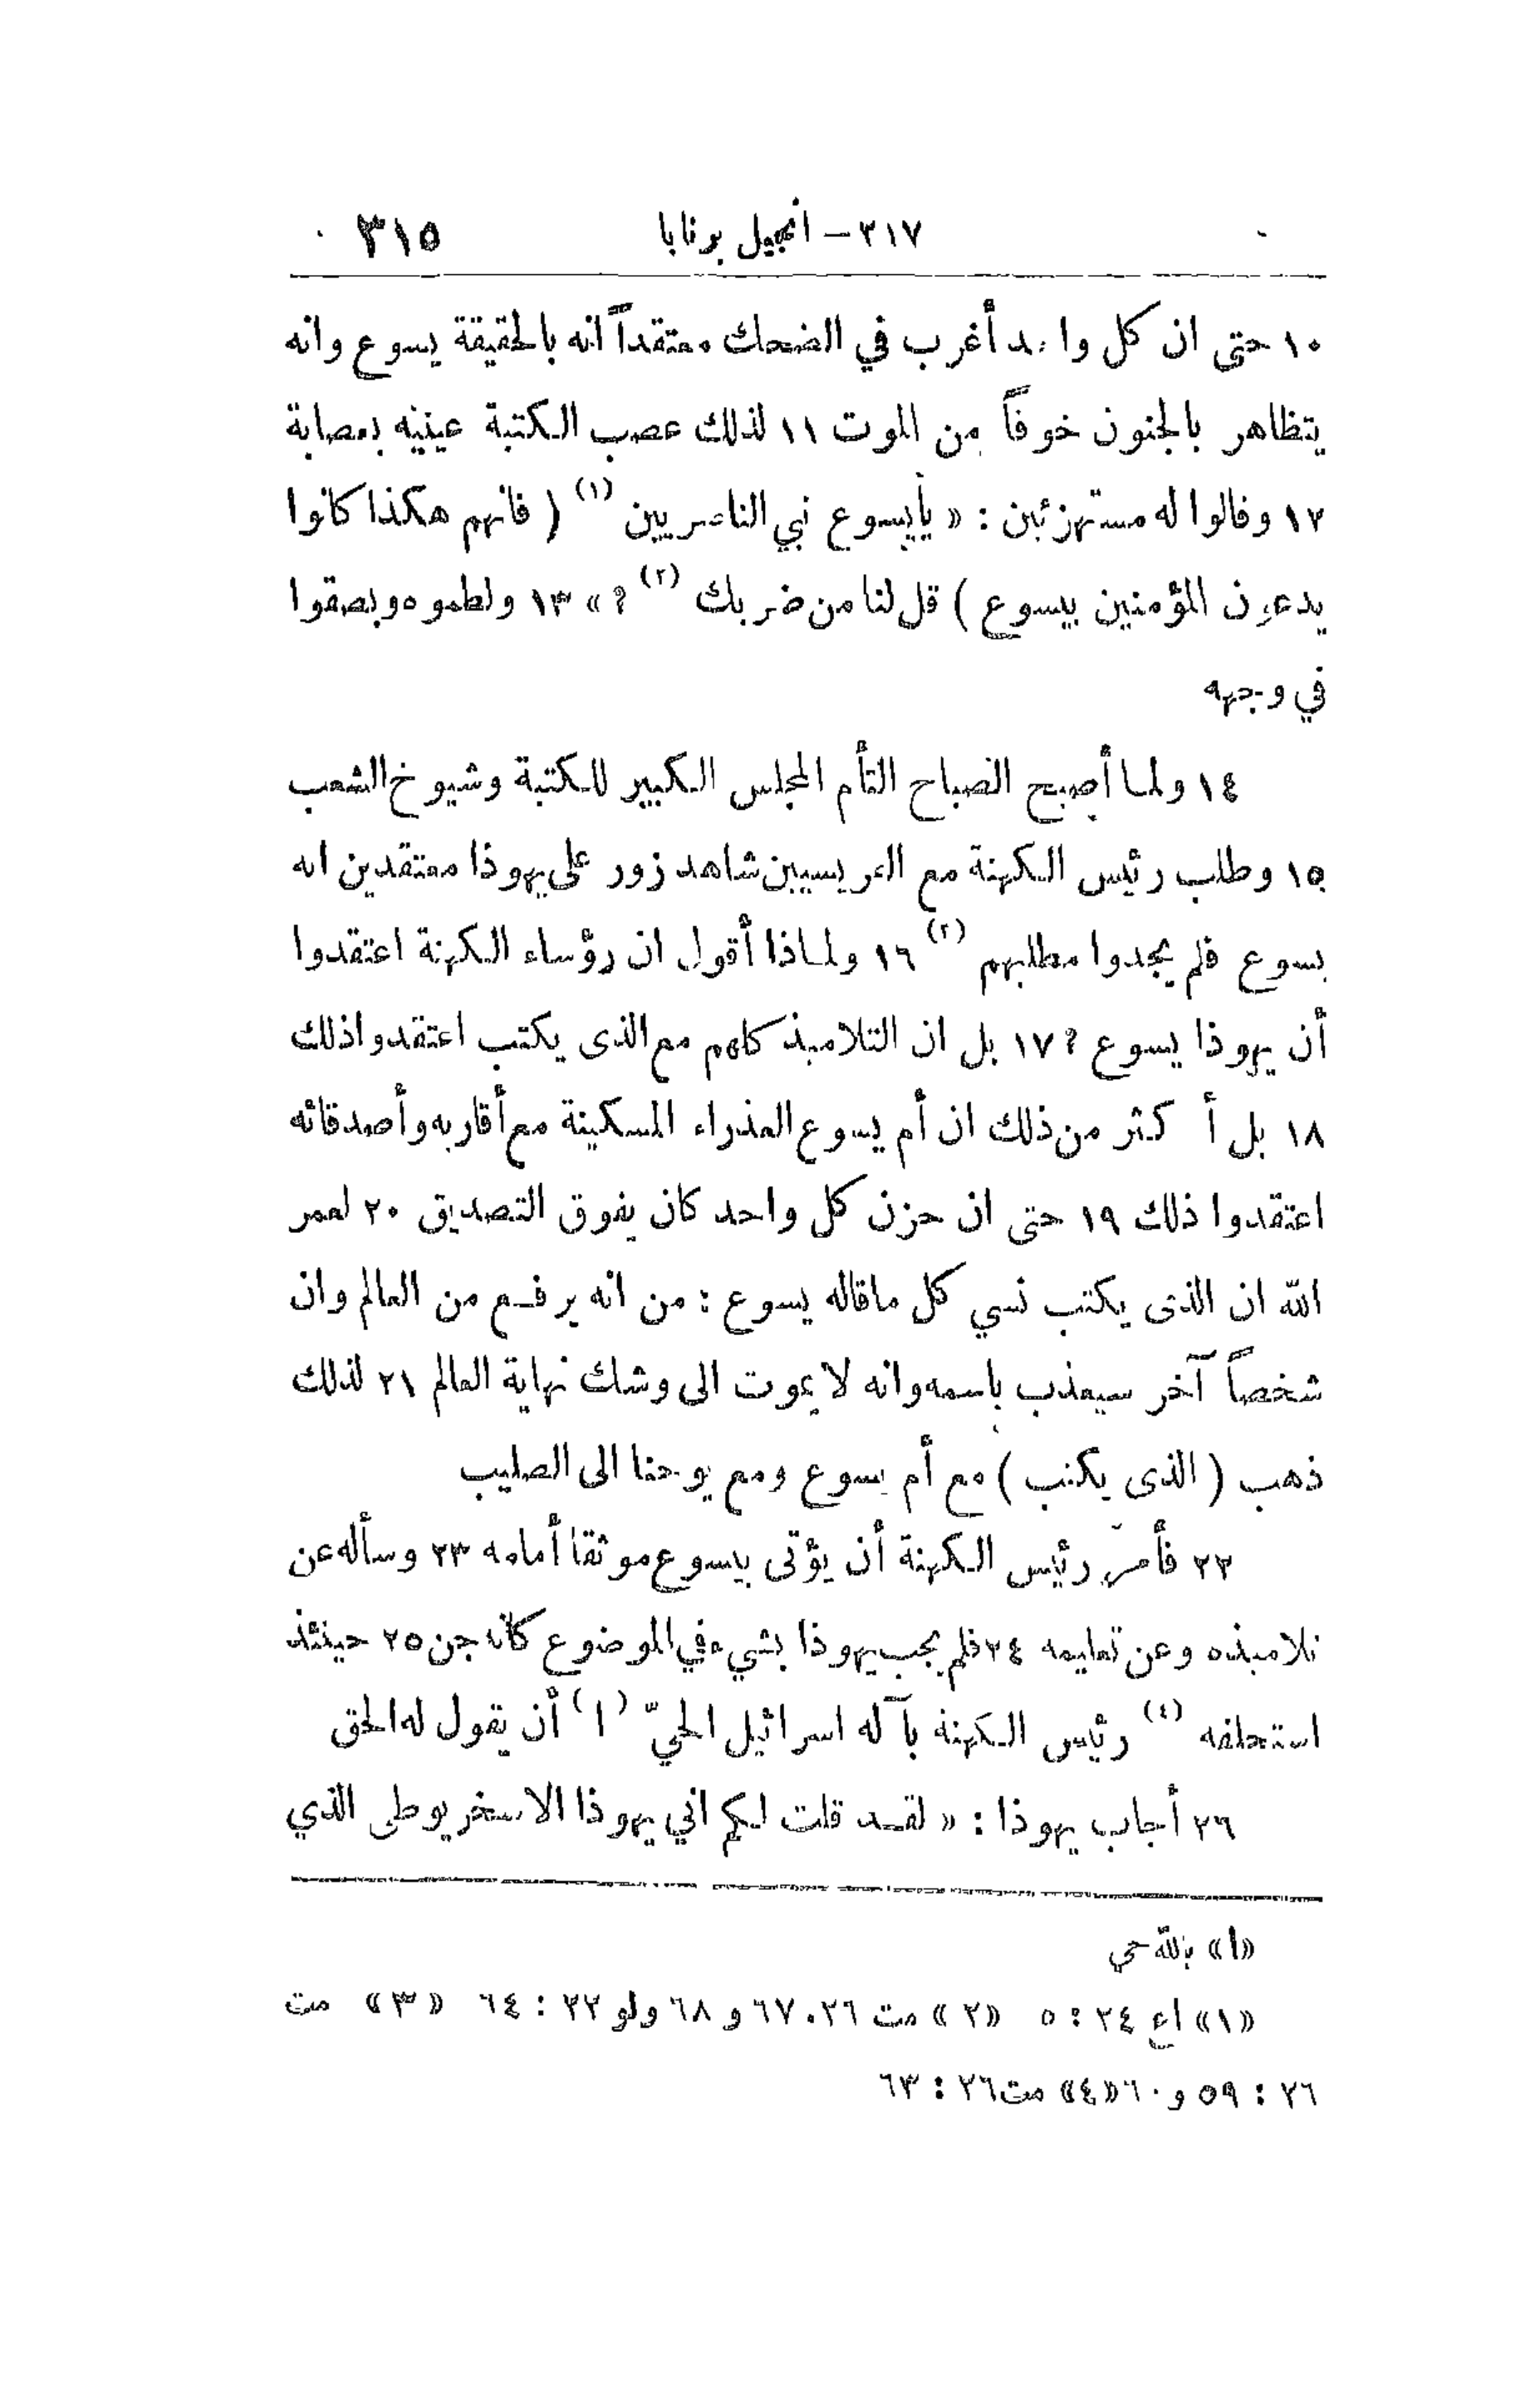 ٢١٧ – انجيل برنابا ٣١٥
١٠ حتى ان كل واحد أغرب في الضحك معتقداً انه بالحقيقة يسوع وانه
يتظاهر بالجنون خوفاً من الموت ١١ لذلك عصب الكتبة عينيه بعصابة
١٢ وقالوا له مستهزئين : « يا يسوع نبي الناصريين (١) ( فانهم هكذا كانوا
يدعون المؤمنين بيسوع ) قل لنا من ضربك (٢) ؟ » ١٣ ولطموه وبصقوا
في وجهه
١٤ ولما أصبح الصباح التأم المجلس الكبير للكتبة وشيوخ الشعب
١٥ وطلب رئيس الكهنة مع الفريسيين شاهد زور على يهوذا معتقدين انه
يسوع فلم يجدوا مطلبهم (٣) ١٦ ولماذا أقول ان رؤساء الكهنة اعتقدوا
أن يهوذا يسوع ؟ ١٧ بل ان التلاميذ كلهم مع الذى يكتب اعتقدوا ذلك
١٨ بل أكثر من ذلك ان أم يسوع العذراء المسكينة مع أقاربه وأصدقائه
اعتقدوا ذلك ١٩ حتى ان حزن كل واحد كان يفوق التصديق ٢٠ لعمر
الله ان الذى يكتب نسي كل ماقاله يسوع : من انه يرفع من العالم وان
شخصاً آخر سيعذب باسمه وانه لا يموت الى وشك نهاية العالم ٢١ لذلك
ذهب ( الذى يكتب ) مع أم يسوع ومع يوحنا الى الصليب
٢٢ فأمر رئيس الكهنة أن يؤتى بيسوع موثقا أمامه ٢٣ وسأله عن
تلاميذه وعن تعليمه ٢٤ فلم يجب يهوذا بشيء في الموضوع كأنه جن ٢٥ حينئذ
استحلفه (٤) رئيس الكهنة بآله اسرائيل الحيّ (ا) أن يقول له الحق
٢٦ أجاب يهوذا : « لقد قلت لكم اني يهوذا الاسخريوطى الذي
«ا» بالله حي
«١» اع ٢٤ : ٥ «٢» مت ٢٦ . ٦٧ و ٦٨ ولو ٢٢ : ٦٤ «٣» مت
٢٦ : ٥٩ و ٦٠ «٤» مت ٢٦ : ٦٣